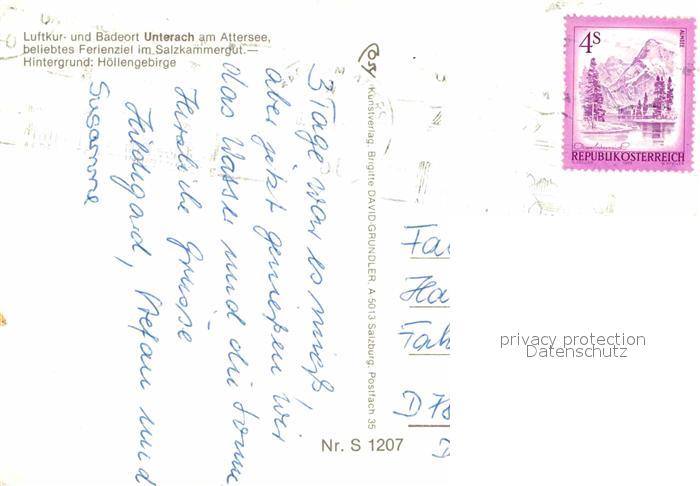 Luftkur- und Badeort Unterach am Attersee,
beliebtes Ferienziel im Salzkammergut.—
Hintergrund: Höllengebirge
3 Tage war es mies,
aber jetzt genießen wir
das Wasser und die Sonne
Herzliche Grüsse
Hildegard, Stefan und
Susanne
Cosy
Kunstverlag, Brigitte DAVID-GRUNDLER, A-5013 Salzburg, Postfach 35
Nr. S 1207
ALMSEE
4S
REPUBLIK ÖSTERREICH
Fa
Ha
Fah
D 78
D
privacy protection
Datenschutz